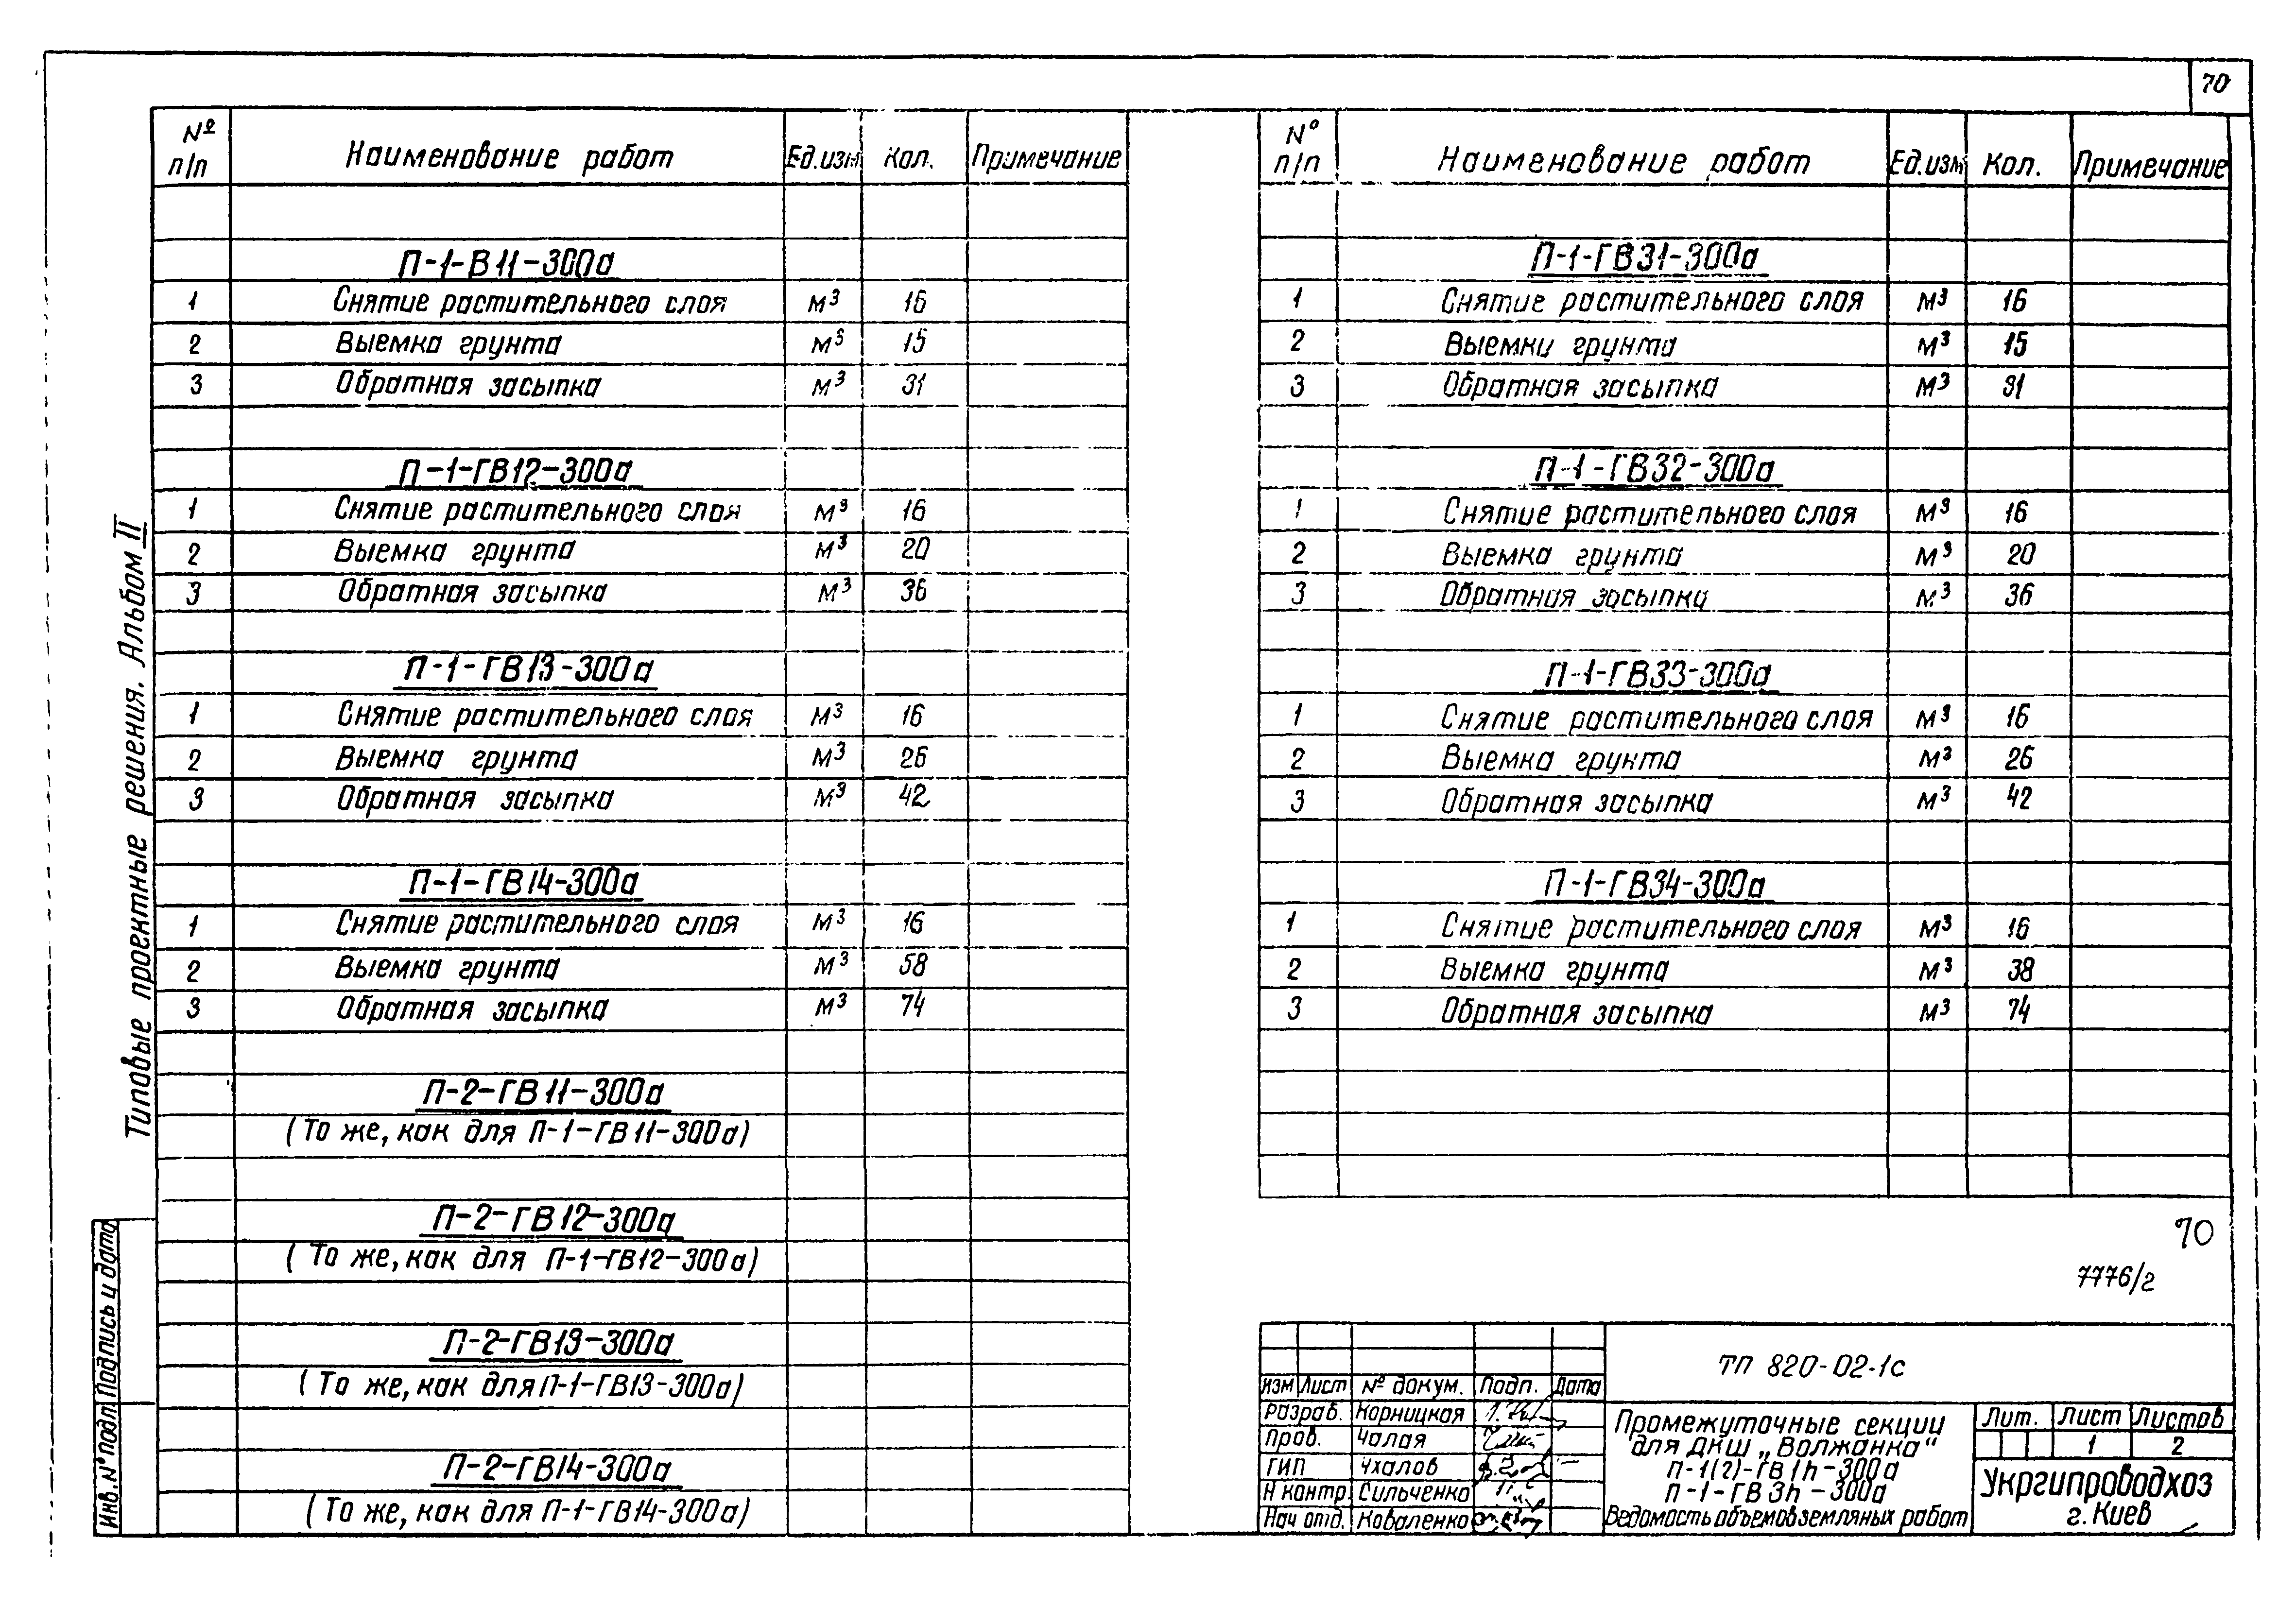 70
№ п/п Наименование работ Ед.изм Кол. Примечание
П-1-В11-300а
1 Снятие растительного слоя м³ 16
2 Выемка грунта м³ 15
3 Обратная засыпка м³ 31
П-1-ГВ12-300а
1 Снятие растительного слоя м³ 16
2 Выемка грунта м³ 20
3 Обратная засыпка м³ 36
П-1-ГВ13-300а
1 Снятие растительного слоя м³ 16
2 Выемка грунта м³ 26
3 Обратная засыпка м³ 42
П-1-ГВ14-300а
1 Снятие растительного слоя м³ 16
2 Выемка грунта м³ 58
3 Обратная засыпка м³ 74
П-2-ГВ11-300а
(То же, как для П-1-ГВ11-300а)
П-2-ГВ12-300а
(То же, как для П-1-ГВ12-300а)
П-2-ГВ13-300а
(То же, как для П-1-ГВ13-300а)
П-2-ГВ14-300а
(То же, как для П-1-ГВ14-300а)
№ п/п Наименование работ Ед.изм Кол. Примечание
П-1-ГВ31-300а
1 Снятие растительного слоя м³ 16
2 Выемки грунта м³ 15
3 Обратная засыпка м³ 31
П-1-ГВ32-300а
1 Снятие растительного слоя м³ 16
2 Выемка грунта м³ 20
3 Обратная засыпка м³ 36
П-1-ГВ33-300а
1 Снятие растительного слоя м³ 16
2 Выемка грунта м³ 26
3 Обратная засыпка м³ 42
П-1-ГВ34-300а
1 Снятие растительного слоя м³ 16
2 Выемка грунта м³ 38
3 Обратная засыпка м³ 74
70
7776/2
ТП 820-02-1с
Изм Лист № докум. Подп. Дата
Разраб. Корницкая
Пров. Чалая
ГИП Чхалов
Н контр. Сильченко
Нач отд. Коваленко
Промежуточные секции
для ДКШ „Волжанка“
П-1(2)-ГВ1h-300а
П-1-ГВ3h-300а
Ведомость объемов земляных работ
Лит. Лист Листов
1 2
Укргипроводхоз
г. Киев
Типовые проектные решения. Альбом II
Инв.№ подл. Подпись и дата